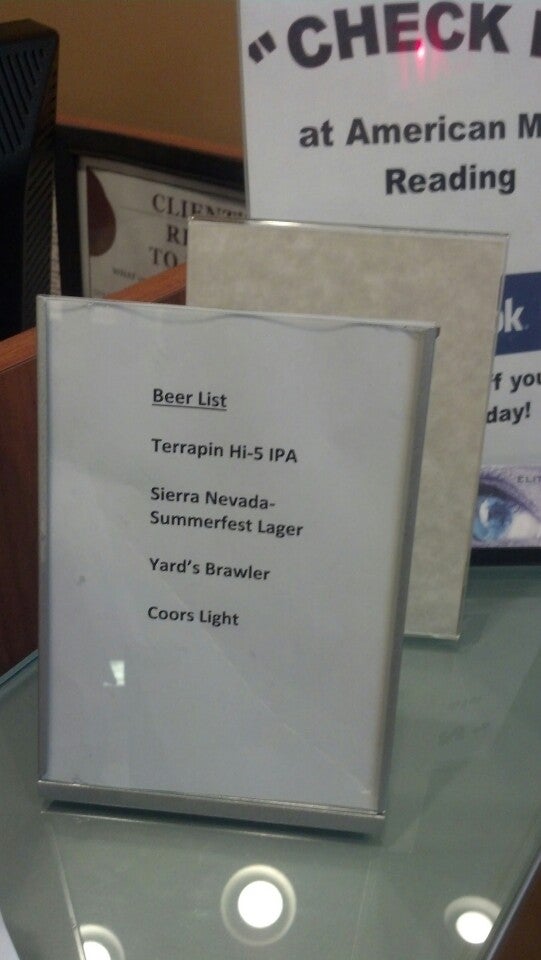 "CHECK
at American M
Reading
CLIENT
TO
k
f you
day!
ELIT
Beer List
Terrapin Hi-5 IPA
Sierra Nevada-
Summerfest Lager
Yard's Brawler
Coors Light